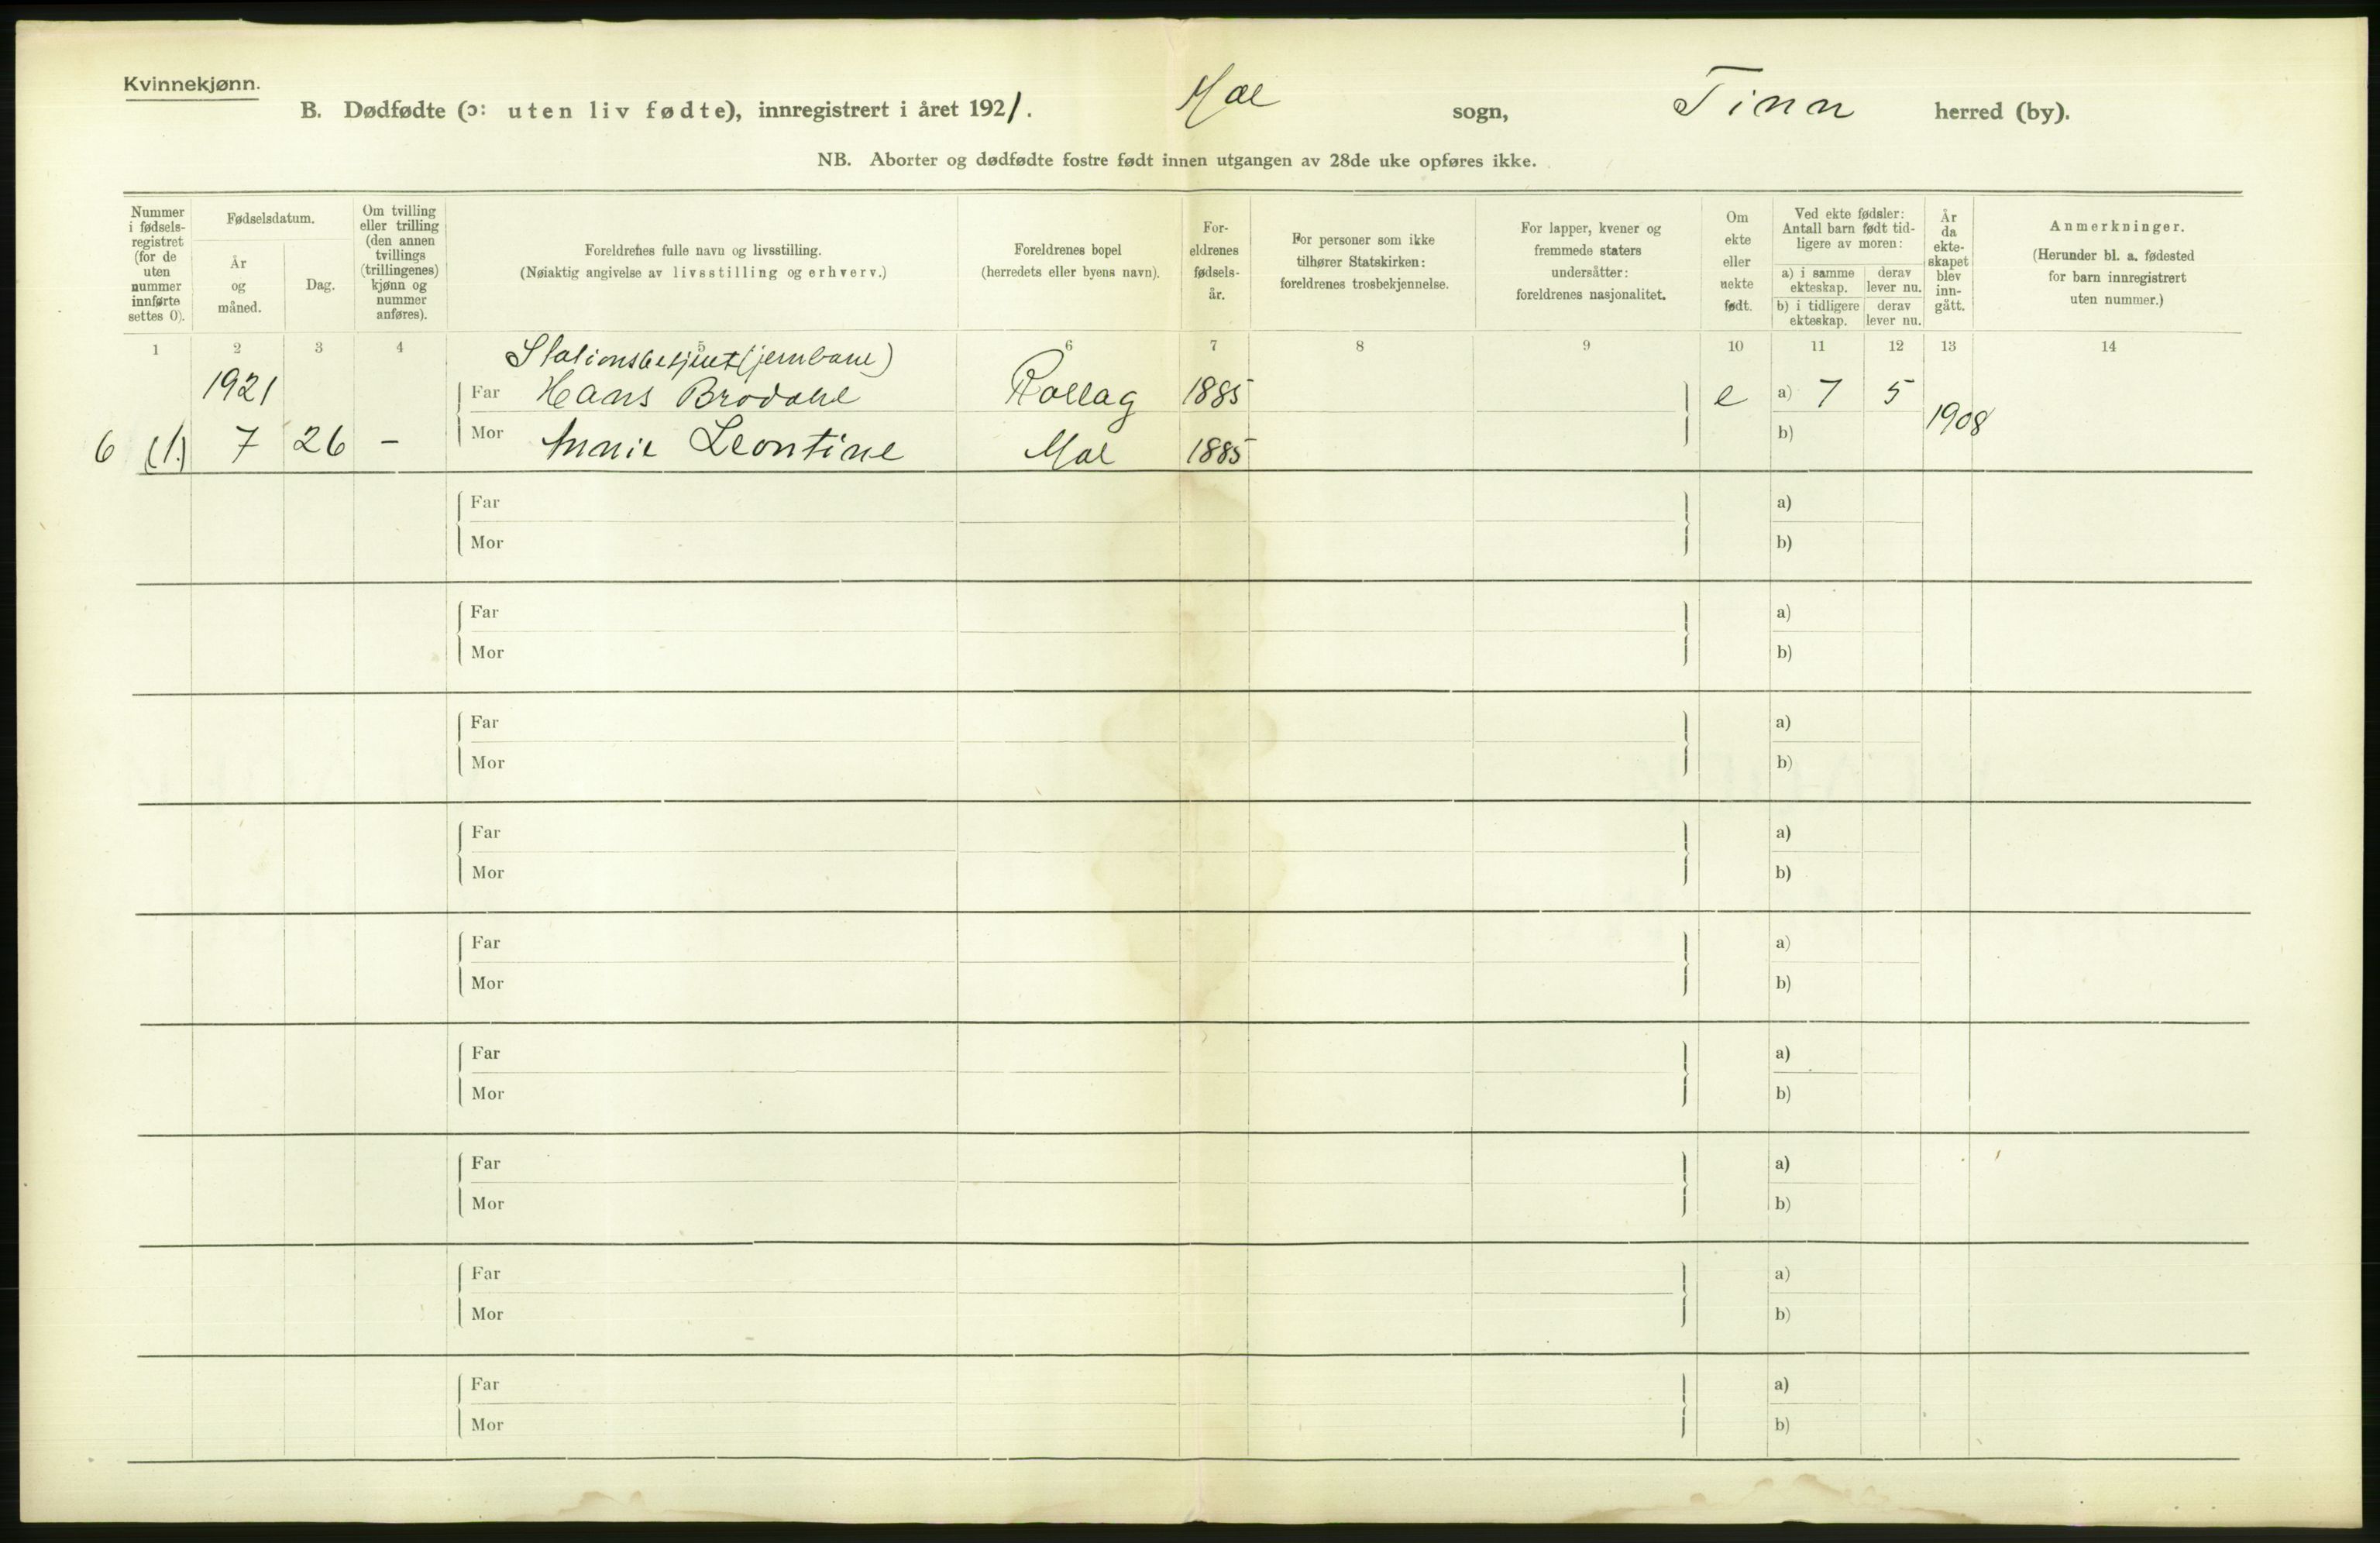 Kvinnekjønn.
B. Dødfødte (ɔ: uten liv fødte), innregistrert i året 1921. Mæl sogn, Tinn herred (by).
NB. Aborter og dødfødte fostre født innen utgangen av 28de uke opføres ikke.
Nummer i fødsels-registret (for de uten nummer innførte settes 0).
Fødselsdatum.
År og måned.
Dag.
Om tvilling eller trilling (den annen tvillings (trillingenes) kjønn og nummer anføres).
Foreldrenes fulle navn og livsstilling.
(Nøiaktig angivelse av livsstilling og erhverv.)
Foreldrenes bopel
(herredets eller byens navn).
For-eldrenes fødsels-år.
For personer som ikke tilhører Statskirken: foreldrenes trosbekjennelse.
For lapper, kvener og fremmede staters undersåtter: foreldrenes nasjonalitet.
Om ekte eller uekte født.
Ved ekte fødsler: Antall barn født tid-ligere av moren:
a) i samme ekteskap. derav lever nu.
b) i tidligere ekteskap. derav lever nu.
År da ekte-skapet blev inn-gått.
Anmerkninger.
(Herunder bl. a. fødested for barn innregistrert uten nummer.)
1 2 3 4 5 6 7 8 9 10 11 12 13 14
Stationsbetjent (jernbane)
1921 Far Hans Brodahl Rollag 1885 e a) 7 5 1908
6 (1.) 7 26 – Mor Annie Leontine Mæl 1885 b)
Far a)
Mor b)
Far a)
Mor b)
Far a)
Mor b)
Far a)
Mor b)
Far a)
Mor b)
Far a)
Mor b)
Far a)
Mor b)
Far a)
Mor b)
Far a)
Mor b)